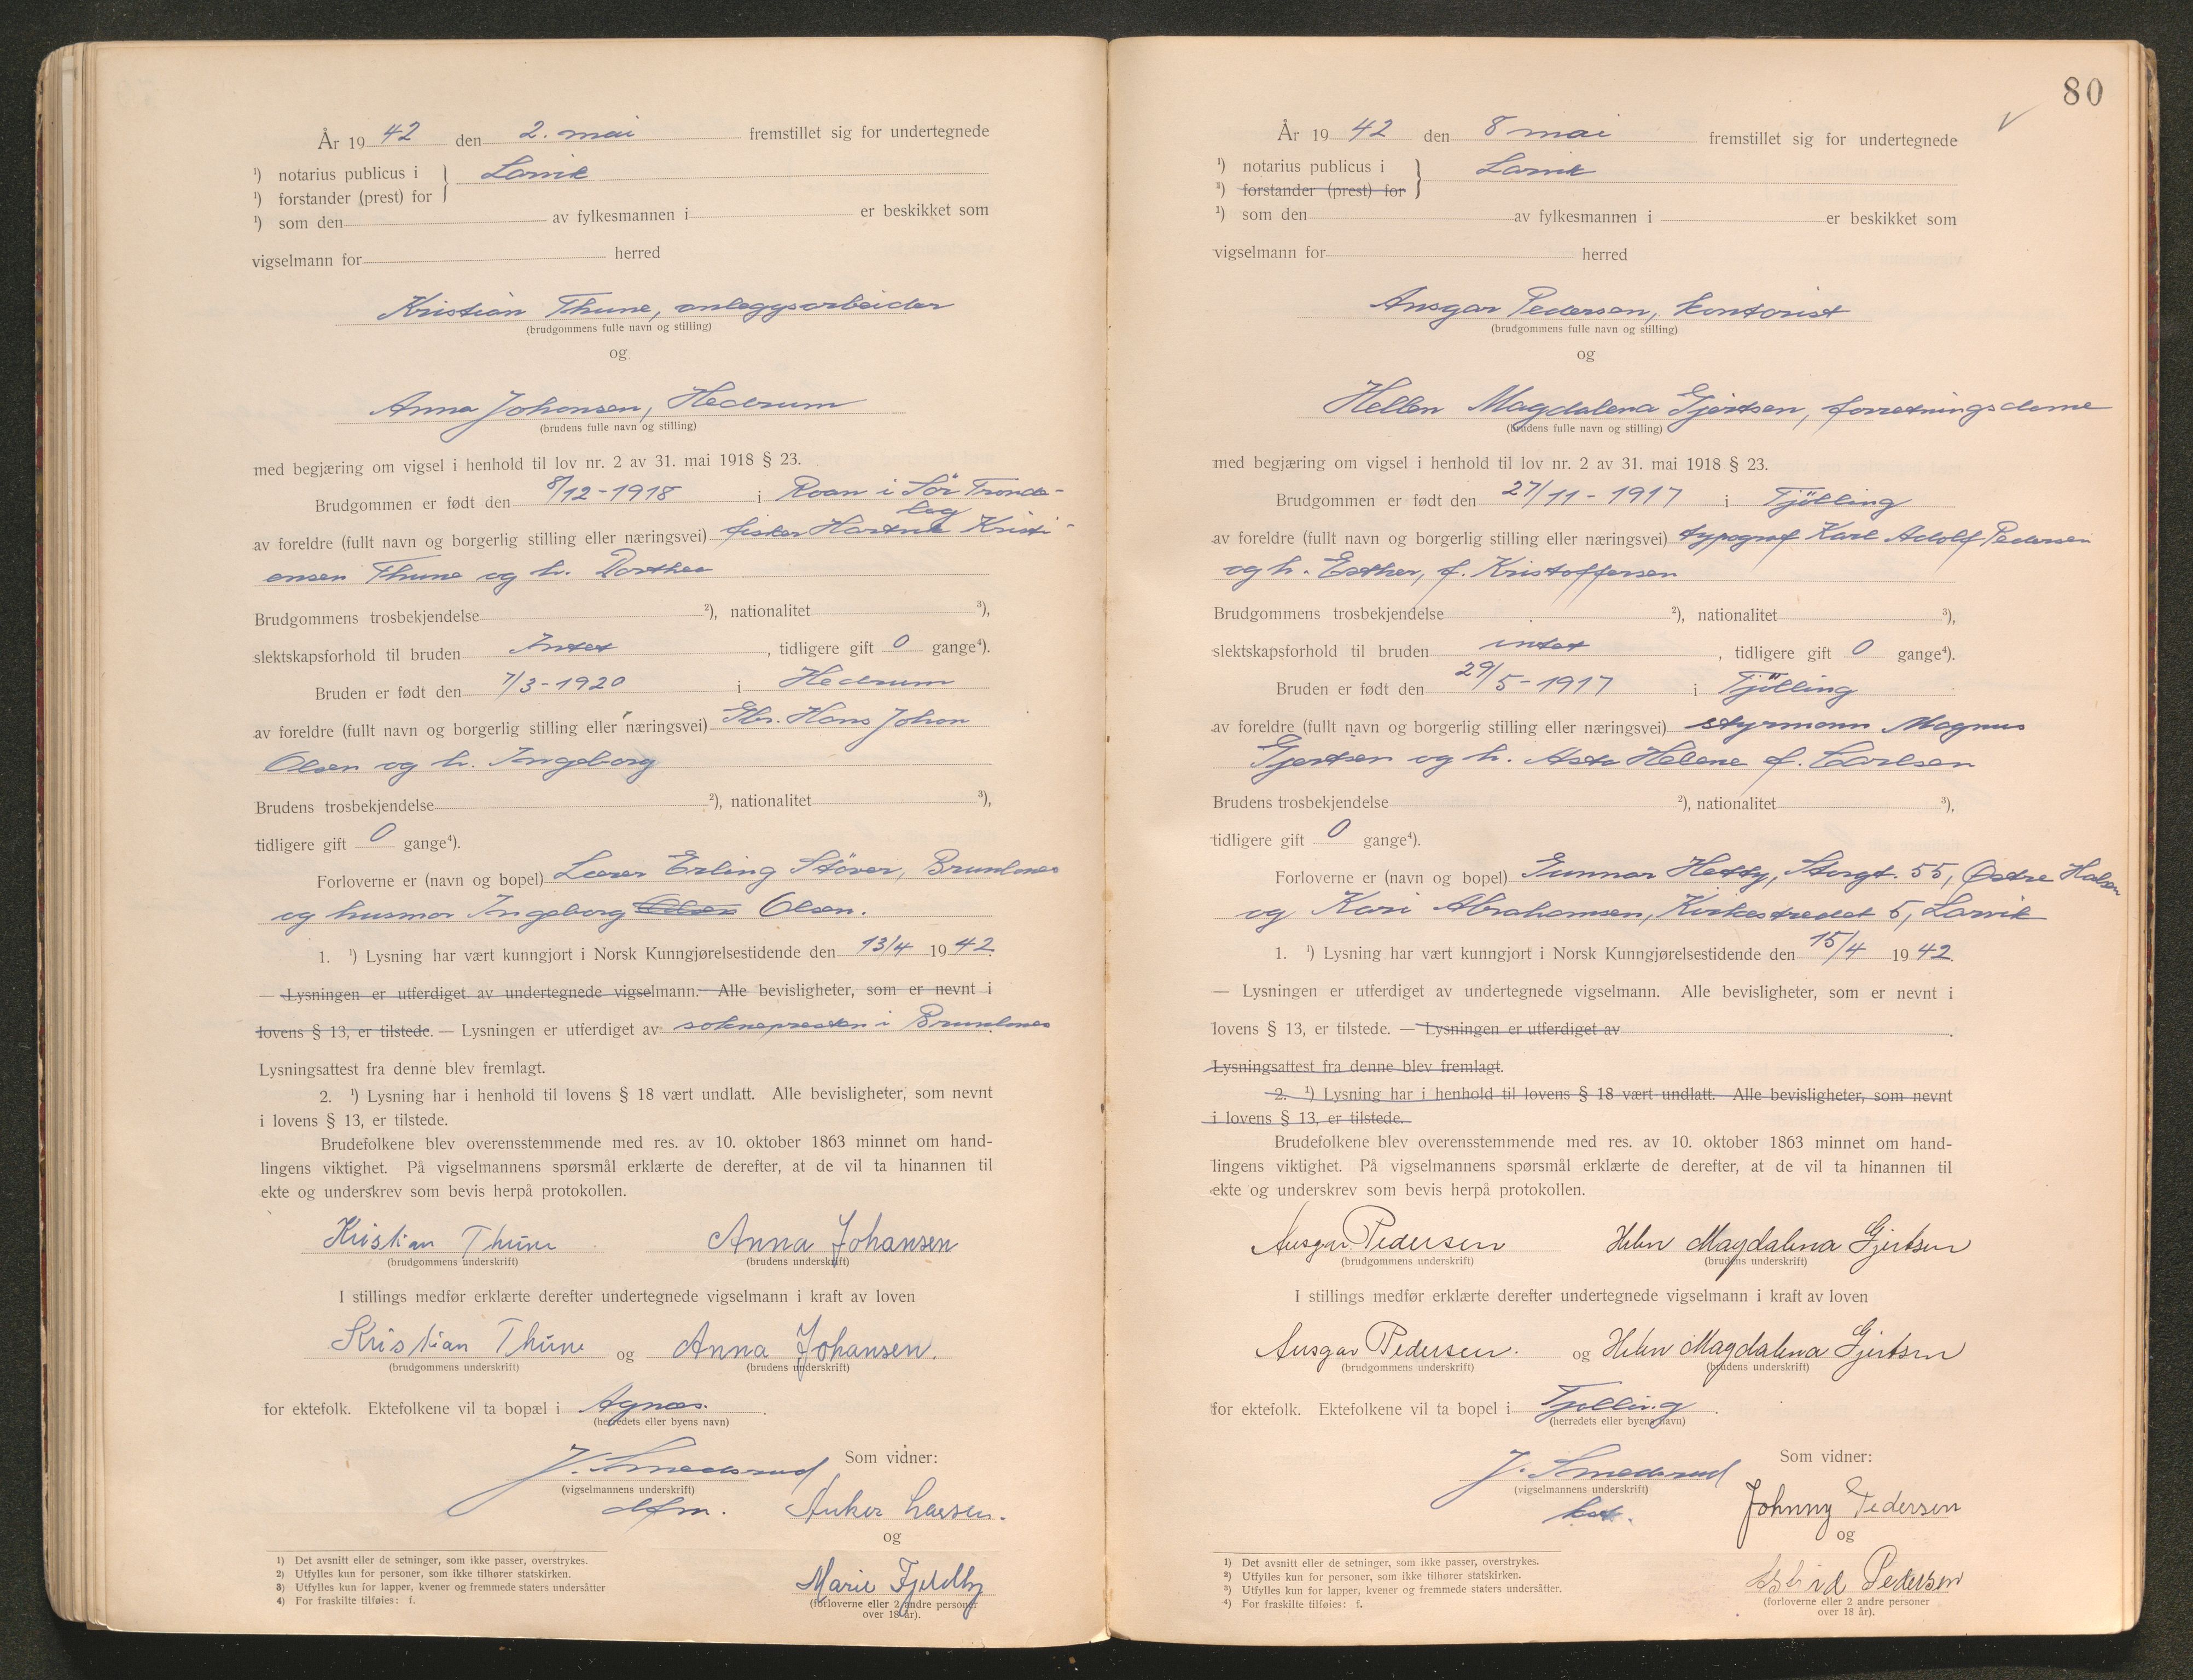 År 19 42 den 2. mai fremstillet sig for undertegnede
¹) notarius publicus i } Larvik
¹) forstander (prest) for
¹) som den av fylkesmannen i er beskikket som
vigselmann for herred
Kristian Thune, anleggsarbeider
(brudgommens fulle navn og stilling)
og
Anna Johansen, Hedrum
(brudens fulle navn og stilling)
med begjæring om vigsel i henhold til lov nr. 2 av 31. mai 1918 § 23.
Brudgommen er født den 8/12-1918 i Roan i Sör Tronde-
lag
av foreldre (fullt navn og borgerlig stilling eller næringsvei) fisker Kristi-
ansen Thune og h. Dorthea
Brudgommens trosbekjendelse ²), nationalitet ³),
slektskapsforhold til bruden Intet, tidligere gift 0 gange⁴).
Bruden er født den 7/3-1920 i Hedrum
av foreldre (fullt navn og borgerlig stilling eller næringsvei) Gbr. Hans Johan
Olsen og h. Ingeborg
Brudens trosbekjendelse ²), nationalitet ³),
tidligere gift 0 gange⁴).
Forloverne er (navn og bopel) Lærer Erling Stöver, Brunlanes
og husmor Ingeborg Olsen.
1. ¹) Lysning har vært kunngjort i Norsk Kunngjørelsestidende den 13/4 19 42.
— Lysningen er utferdiget av undertegnede vigselmann. Alle bevisligheter, som er nevnt i
lovens § 13, er tilstede. — Lysningen er utferdiget av soknepresten i Brunlanes
Lysningsattest fra denne blev fremlagt.
2. ¹) Lysning har i henhold til lovens § 18 vært undlatt. Alle bevisligheter, som nevnt
i lovens § 13, er tilstede.
Brudefolkene blev overensstemmende med res. av 10. oktober 1863 minnet om hand-
lingens viktighet. På vigselmannens spørsmål erklærte de derefter, at de vil ta hinannen til
ekte og underskrev som bevis herpå protokollen.
Kristian Thune Anna Johansen
(brudgommens underskrift) (brudens underskrift)
I stillings medfør erklærte derefter undertegnede vigselmann i kraft av loven
Kristian Thune og Anna Johansen.
(brudgommens underskrift) (brudens underskrift)
for ektefolk. Ektefolkene vil ta bopæl i Agnes.
(herredets eller byens navn)
J. Smedsrud Som vidner:
(vigselmannens underskrift)
dfm. Anker Larsen.
og
Marie Fjeldby
(forloverne eller 2 andre personer
over 18 år).
1) Det avsnitt eller de setninger, som ikke passer, overstrykes.
2) Utfylles kun for personer, som ikke tilhører statskirken.
3) Utfylles kun for lapper, kvener og fremmede staters undersåtter
4) For fraskilte tilføies: f.
80
År 19 42 den 8 mai fremstillet sig for undertegnede
¹) notarius publicus i } Larvik
¹) forstander (prest) for
¹) som den av fylkesmannen i er beskikket som
vigselmann for herred
Ansgar Pedersen, kontorist
(brudgommens fulle navn og stilling)
og
Hellen Magdalena Gjertsen, forretningsdame
(brudens fulle navn og stilling)
med begjæring om vigsel i henhold til lov nr. 2 av 31. mai 1918 § 23.
Brudgommen er født den 27/11-1917 i Tjölling
av foreldre (fullt navn og borgerlig stilling eller næringsvei) typograf Karl Adolf Pedersen
og h. Esther, f. Kristoffersen
Brudgommens trosbekjendelse ²), nationalitet ³),
slektskapsforhold til bruden intet, tidligere gift 0 gange⁴).
Bruden er født den 29/5-1917 i Tjölling
av foreldre (fullt navn og borgerlig stilling eller næringsvei) styrmann Magnus
Gjertsen og h. Asta Helene f. Carlsen
Brudens trosbekjendelse ²), nationalitet ³),
tidligere gift 0 gange⁴).
Forloverne er (navn og bopel) Gunnar Hetty, Storgt. 55, Østre Halsen
og Kari Abrahamsen, Kirkestredet 5, Larvik
1. ¹) Lysning har vært kunngjort i Norsk Kunngjørelsestidende den 15/4 19 42.
— Lysningen er utferdiget av undertegnede vigselmann. Alle bevisligheter, som er nevnt i
lovens § 13, er tilstede. — Lysningen er utferdiget av .
Lysningsattest fra denne blev fremlagt.
2. ¹) Lysning har i henhold til lovens § 18 vært undlatt. Alle bevisligheter, som nevnt
i lovens § 13, er tilstede.
Brudefolkene blev overensstemmende med res. av 10. oktober 1863 minnet om hand-
lingens viktighet. På vigselmannens spørsmål erklærte de derefter, at de vil ta hinannen til
ekte og underskrev som bevis herpå protokollen.
Ansgar Pedersen Helen Magdalena Gjertsen
(brudgommens underskrift) (brudens underskrift)
I stillings medfør erklærte derefter undertegnede vigselmann i kraft av loven
Ansgar Pedersen. og Helen Magdalena Gjertsen
(brudgommens underskrift) (brudens underskrift)
for ektefolk. Ektefolkene vil ta bopel i Tjølling.
(herredets eller byens navn)
J. Smedsrud Som vidner:
(vigselmannens underskrift)
Johnny Pedersen
og
Astrid Pedersen
(forloverne eller 2 andre personer
over 18 år).
1) Det avsnitt eller de setninger, som ikke passer, overstrykes.
2) Utfylles kun for personer, som ikke tilhører statskirken.
3) Utfylles kun for lapper, kvener og fremmede staters undersåtter.
4) For fraskilte tilføies: f.